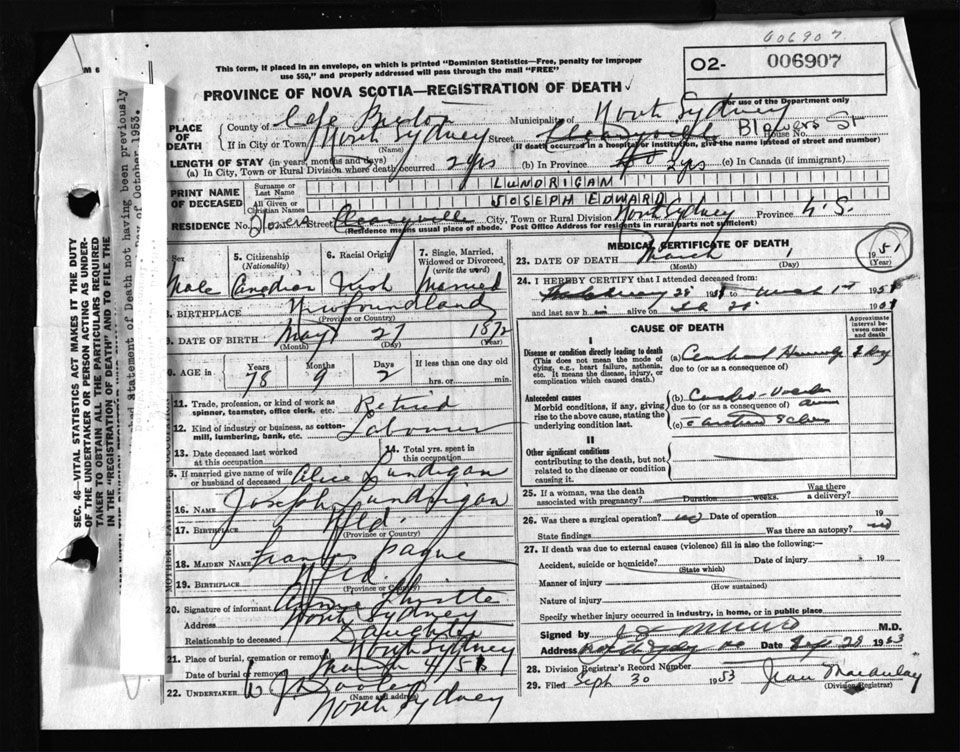 606907
M 6
This form, if placed in an envelope, on which is printed "Dominion Statistics—Free, penalty for improper
use $50," and properly addressed will pass through the mail "FREE"
02- 006907
PROVINCE OF NOVA SCOTIA—REGISTRATION OF DEATH
For use of the Department only
PLACE OF DEATH
County of Cape Breton Municipality of North Sydney
If in City or Town North Sydney Street Blowers St House No.
(Name) (If death occurred in a hospital or institution, give the name instead of street and number)
LENGTH OF STAY (in years, months and days)
(a) In City, Town or Rural Division where death occurred 2 yrs (b) In Province 2 yrs (c) In Canada (if immigrant)
PRINT NAME OF DECEASED
Surname or Last Name LUNDRIGAN
All Given or Christian Names JOSEPH EDWARD
RESIDENCE No. Street City, Town or Rural Division North Sydney Province N.S.
(Residence means usual place of abode. Post Office Address for residents in rural parts not sufficient)
Sex Male
5. Citizenship (Nationality) Canadian
6. Racial Origin Irish
7. Single, Married, Widowed or Divorced, (write the word) Married
8. BIRTHPLACE Newfoundland
(Province or Country)
9. DATE OF BIRTH May 27 1872
(Month) (Day) (Year)
AGE in Years 78 Months 9 Days 2 If less than one day old
hrs. or min.
11. Trade, profession, or kind of work as spinner, teamster, office clerk, etc. Retired
12. Kind of industry or business, as cotton-mill, lumbering, bank, etc. Labourer
13. Date deceased last worked at this occupation
14. Total yrs. spent in this occupation
15. If married give name of wife or husband of deceased Alice Lundrigan
FATHER
16. NAME Joseph Lundrigan
17. BIRTHPLACE Nfld.
(Province or Country)
MOTHER
18. MAIDEN NAME Frances Payne
19. BIRTHPLACE Nfld.
(Province or Country)
20. Signature of informant Annie
Address North Sydney
Relationship to deceased Daughter
21. Place of burial, cremation or removal North Sydney
Date of burial or removal March 4/51
22. UNDERTAKER
(Name and address)
North Sydney
MEDICAL CERTIFICATE OF DEATH
23. DATE OF DEATH March 1951
(Month) (Day) (Year)
24. I HEREBY CERTIFY that I attended deceased from:
28 1951 to March 1st 1951
and last saw h im alive on Feb 28 1951
CAUSE OF DEATH
Approximate interval between onset and death
I
Disease or condition directly leading to death (a)
(This does not mean the mode of dying, e.g., heart failure, asthenia, etc. It means the disease, injury, or complication which caused death.)
due to (or as a consequence of)
Antecedent causes
Morbid conditions, if any, giving rise to the above cause, stating the underlying condition last.
(b) Cardio-
due to (or as a consequence of)
(c)
II
Other significant conditions
contributing to the death, but not related to the disease or condition causing it.
25. If a woman, was the death associated with pregnancy? Duration weeks. Was there a delivery?
26. Was there a surgical operation? no Date of operation 19
State findings Was there an autopsy? no
27. If death was due to external causes (violence) fill in also the following:—
Accident, suicide or homicide? Date of injury 19
(State which)
Manner of injury
(How sustained)
Nature of injury
Specify whether injury occurred in industry, in home, or in public place
Signed by M.D.
Address Date Sep 28 1953
28. Division Registrar's Record Number
29. Filed Sept 30 1953 Jean Macaulay
(Division Registrar)
SEC. 46—VITAL STATISTICS ACT MAKES IT THE DUTY
OF THE UNDERTAKER OR PERSON ACTING AS UNDER-
TAKER TO OBTAIN ALL THE PARTICULARS REQUIRED
IN THE "REGISTRATION OF DEATH" AND TO FILE THE
Statement of Death not having been previously
Day of October 1953.